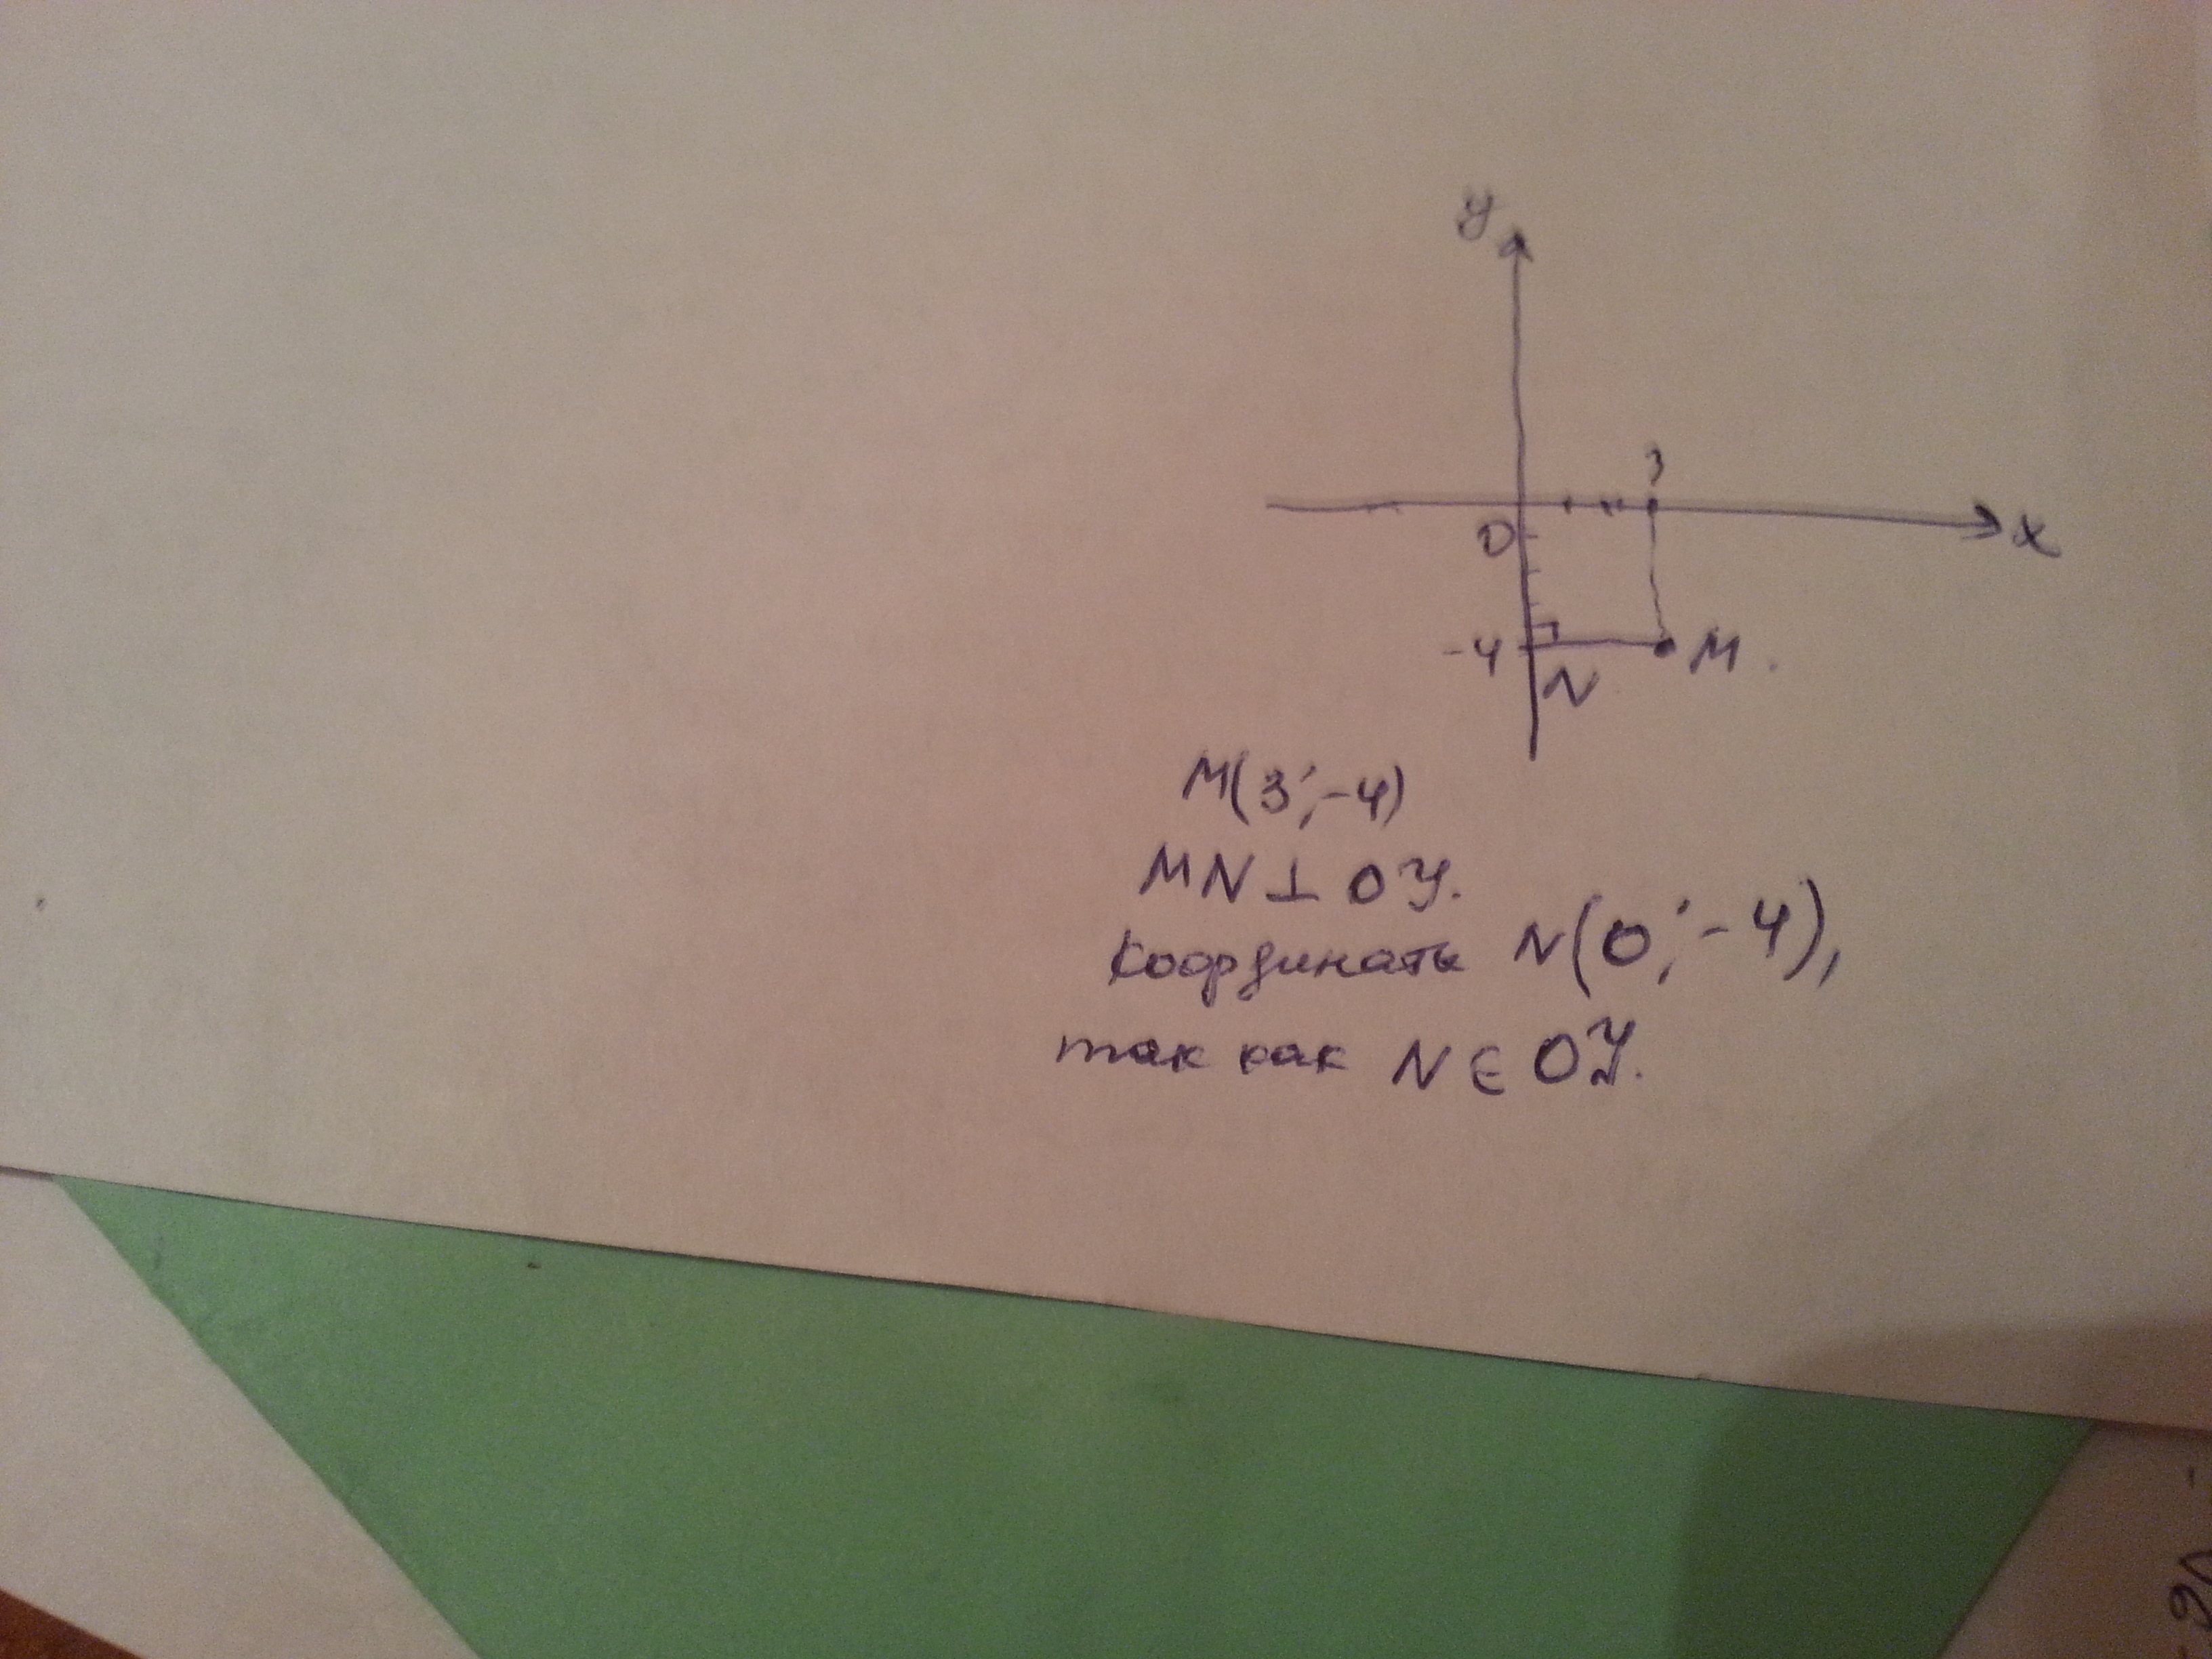 y
3
0
x
-4
N
M.
M(3;-4)
MN⊥OY.
координаты N(0;-4),
так как N∈OY.